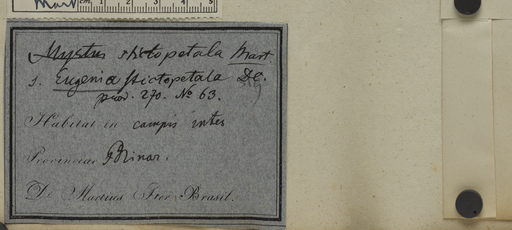 Mart
cm 1 2 3 4 5
Myrtus stictopetala Mart.
s. Eugenia stictopetala DC.
prod. 270. No 63.
Habitat in campis
Provinciae Minar.
D. Martius Iter Brasil.